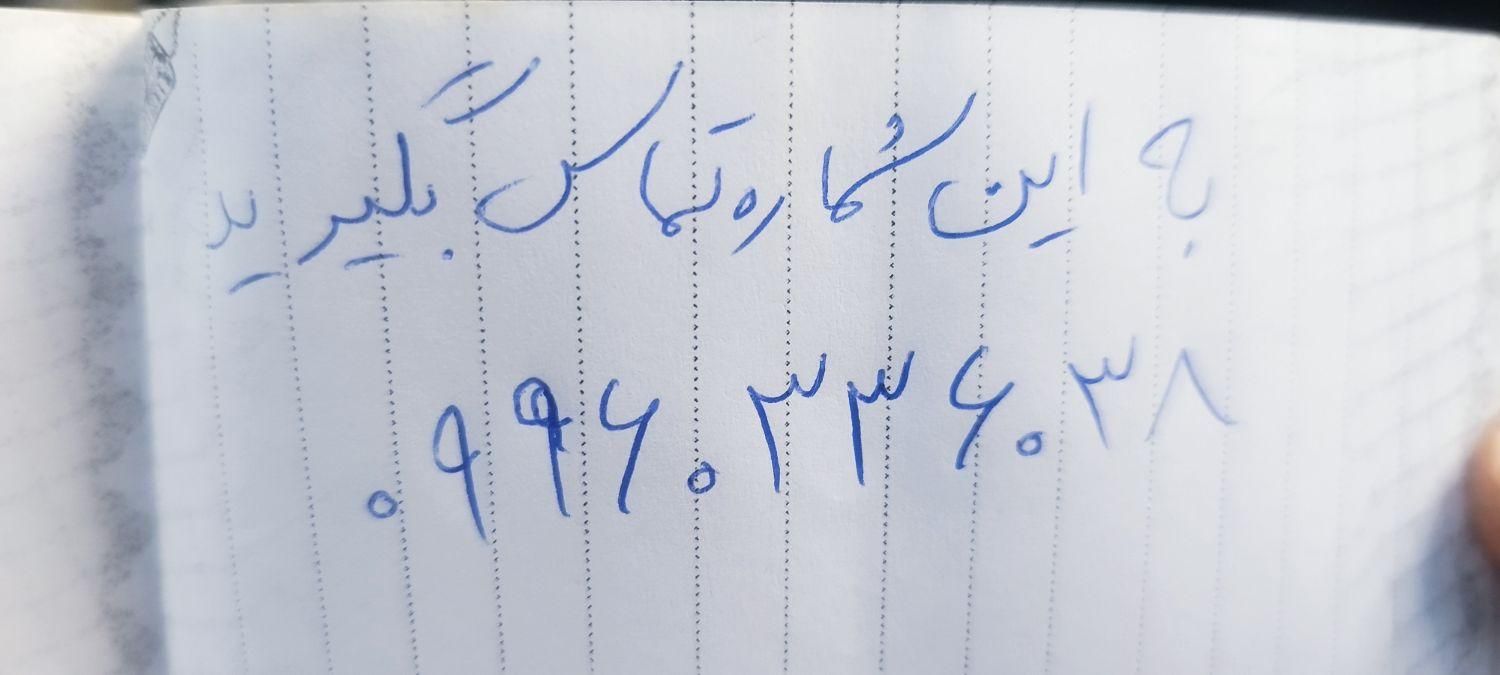 به این شماره تماس بگیرید
۰۹۹۶۰۳۳۶۰۳۸